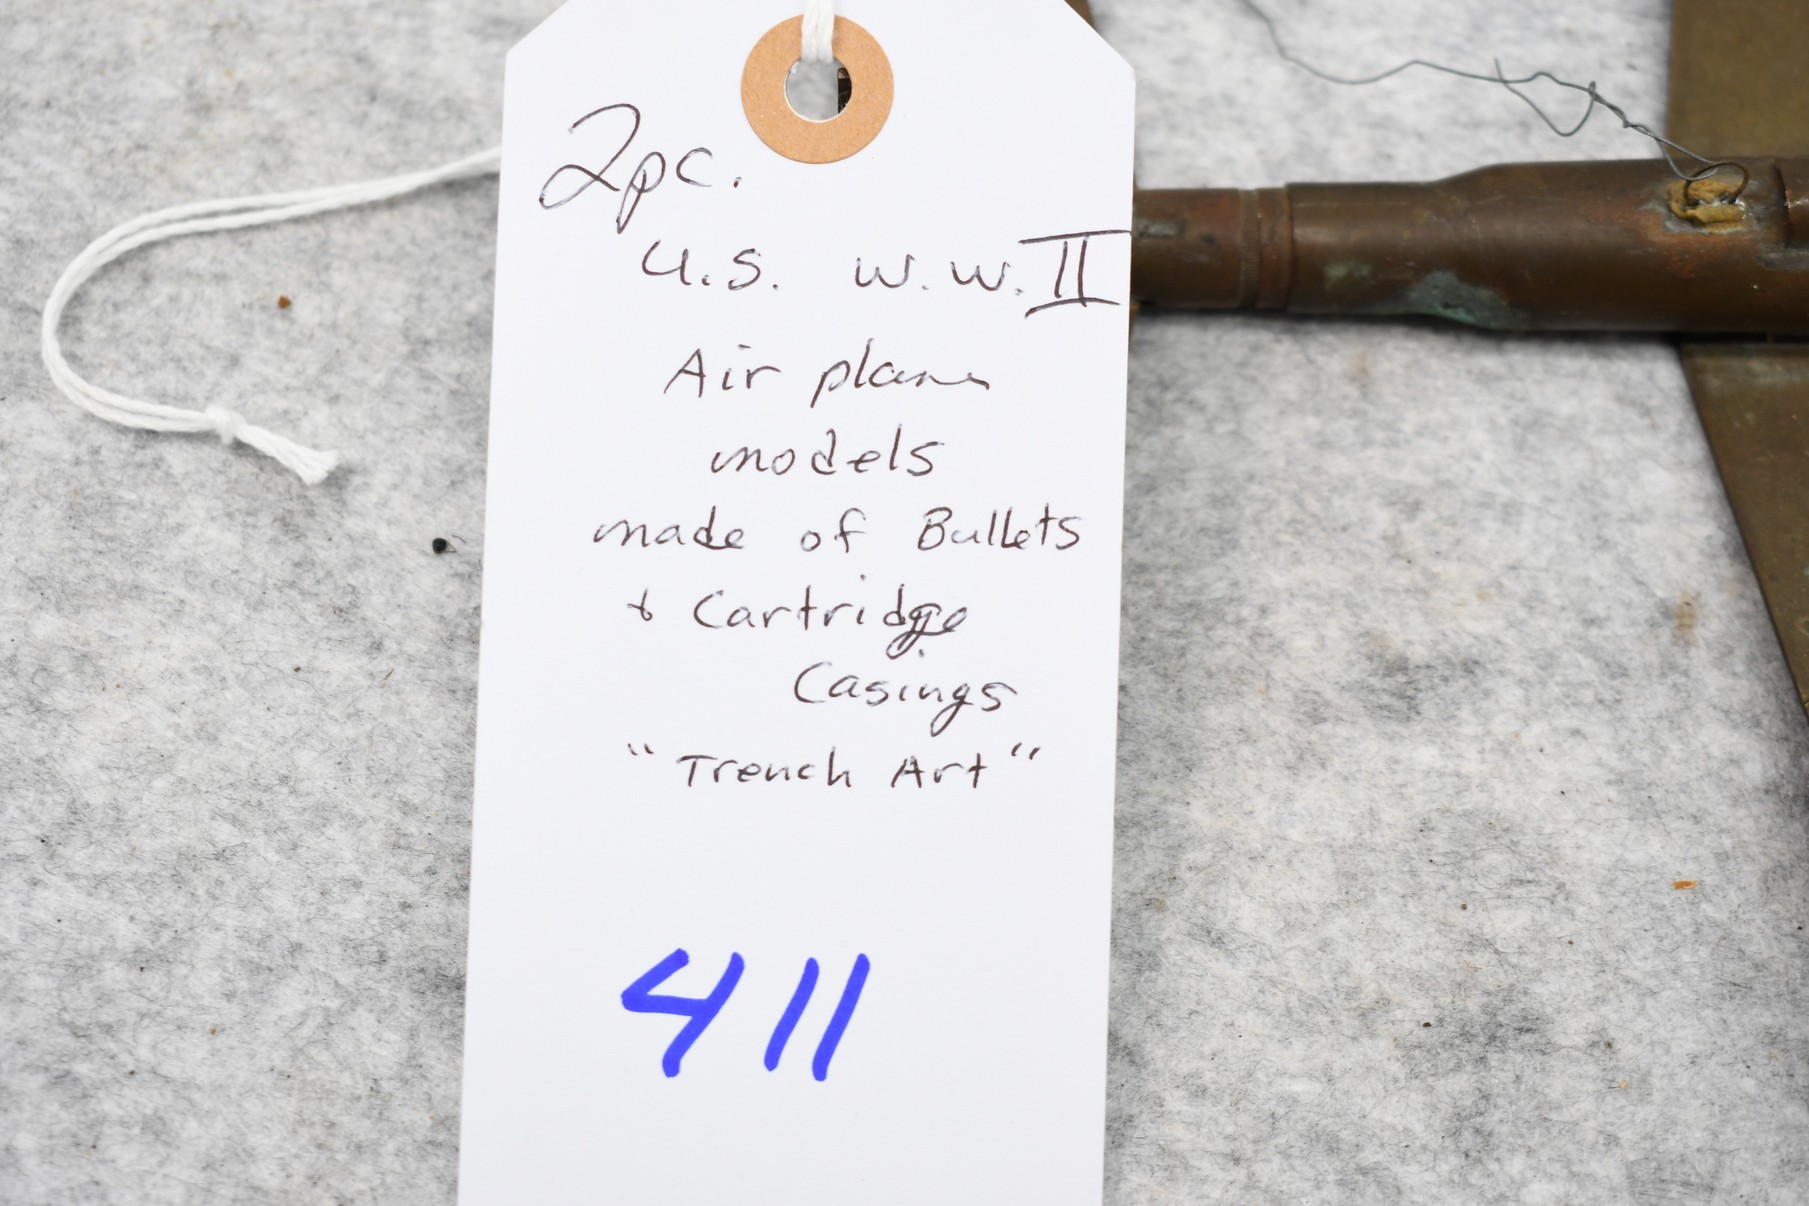 2pc.
U.S. W.W. II
Air plane
models
made of Bullets
& Cartridge
Casings
"Trench Art"
411